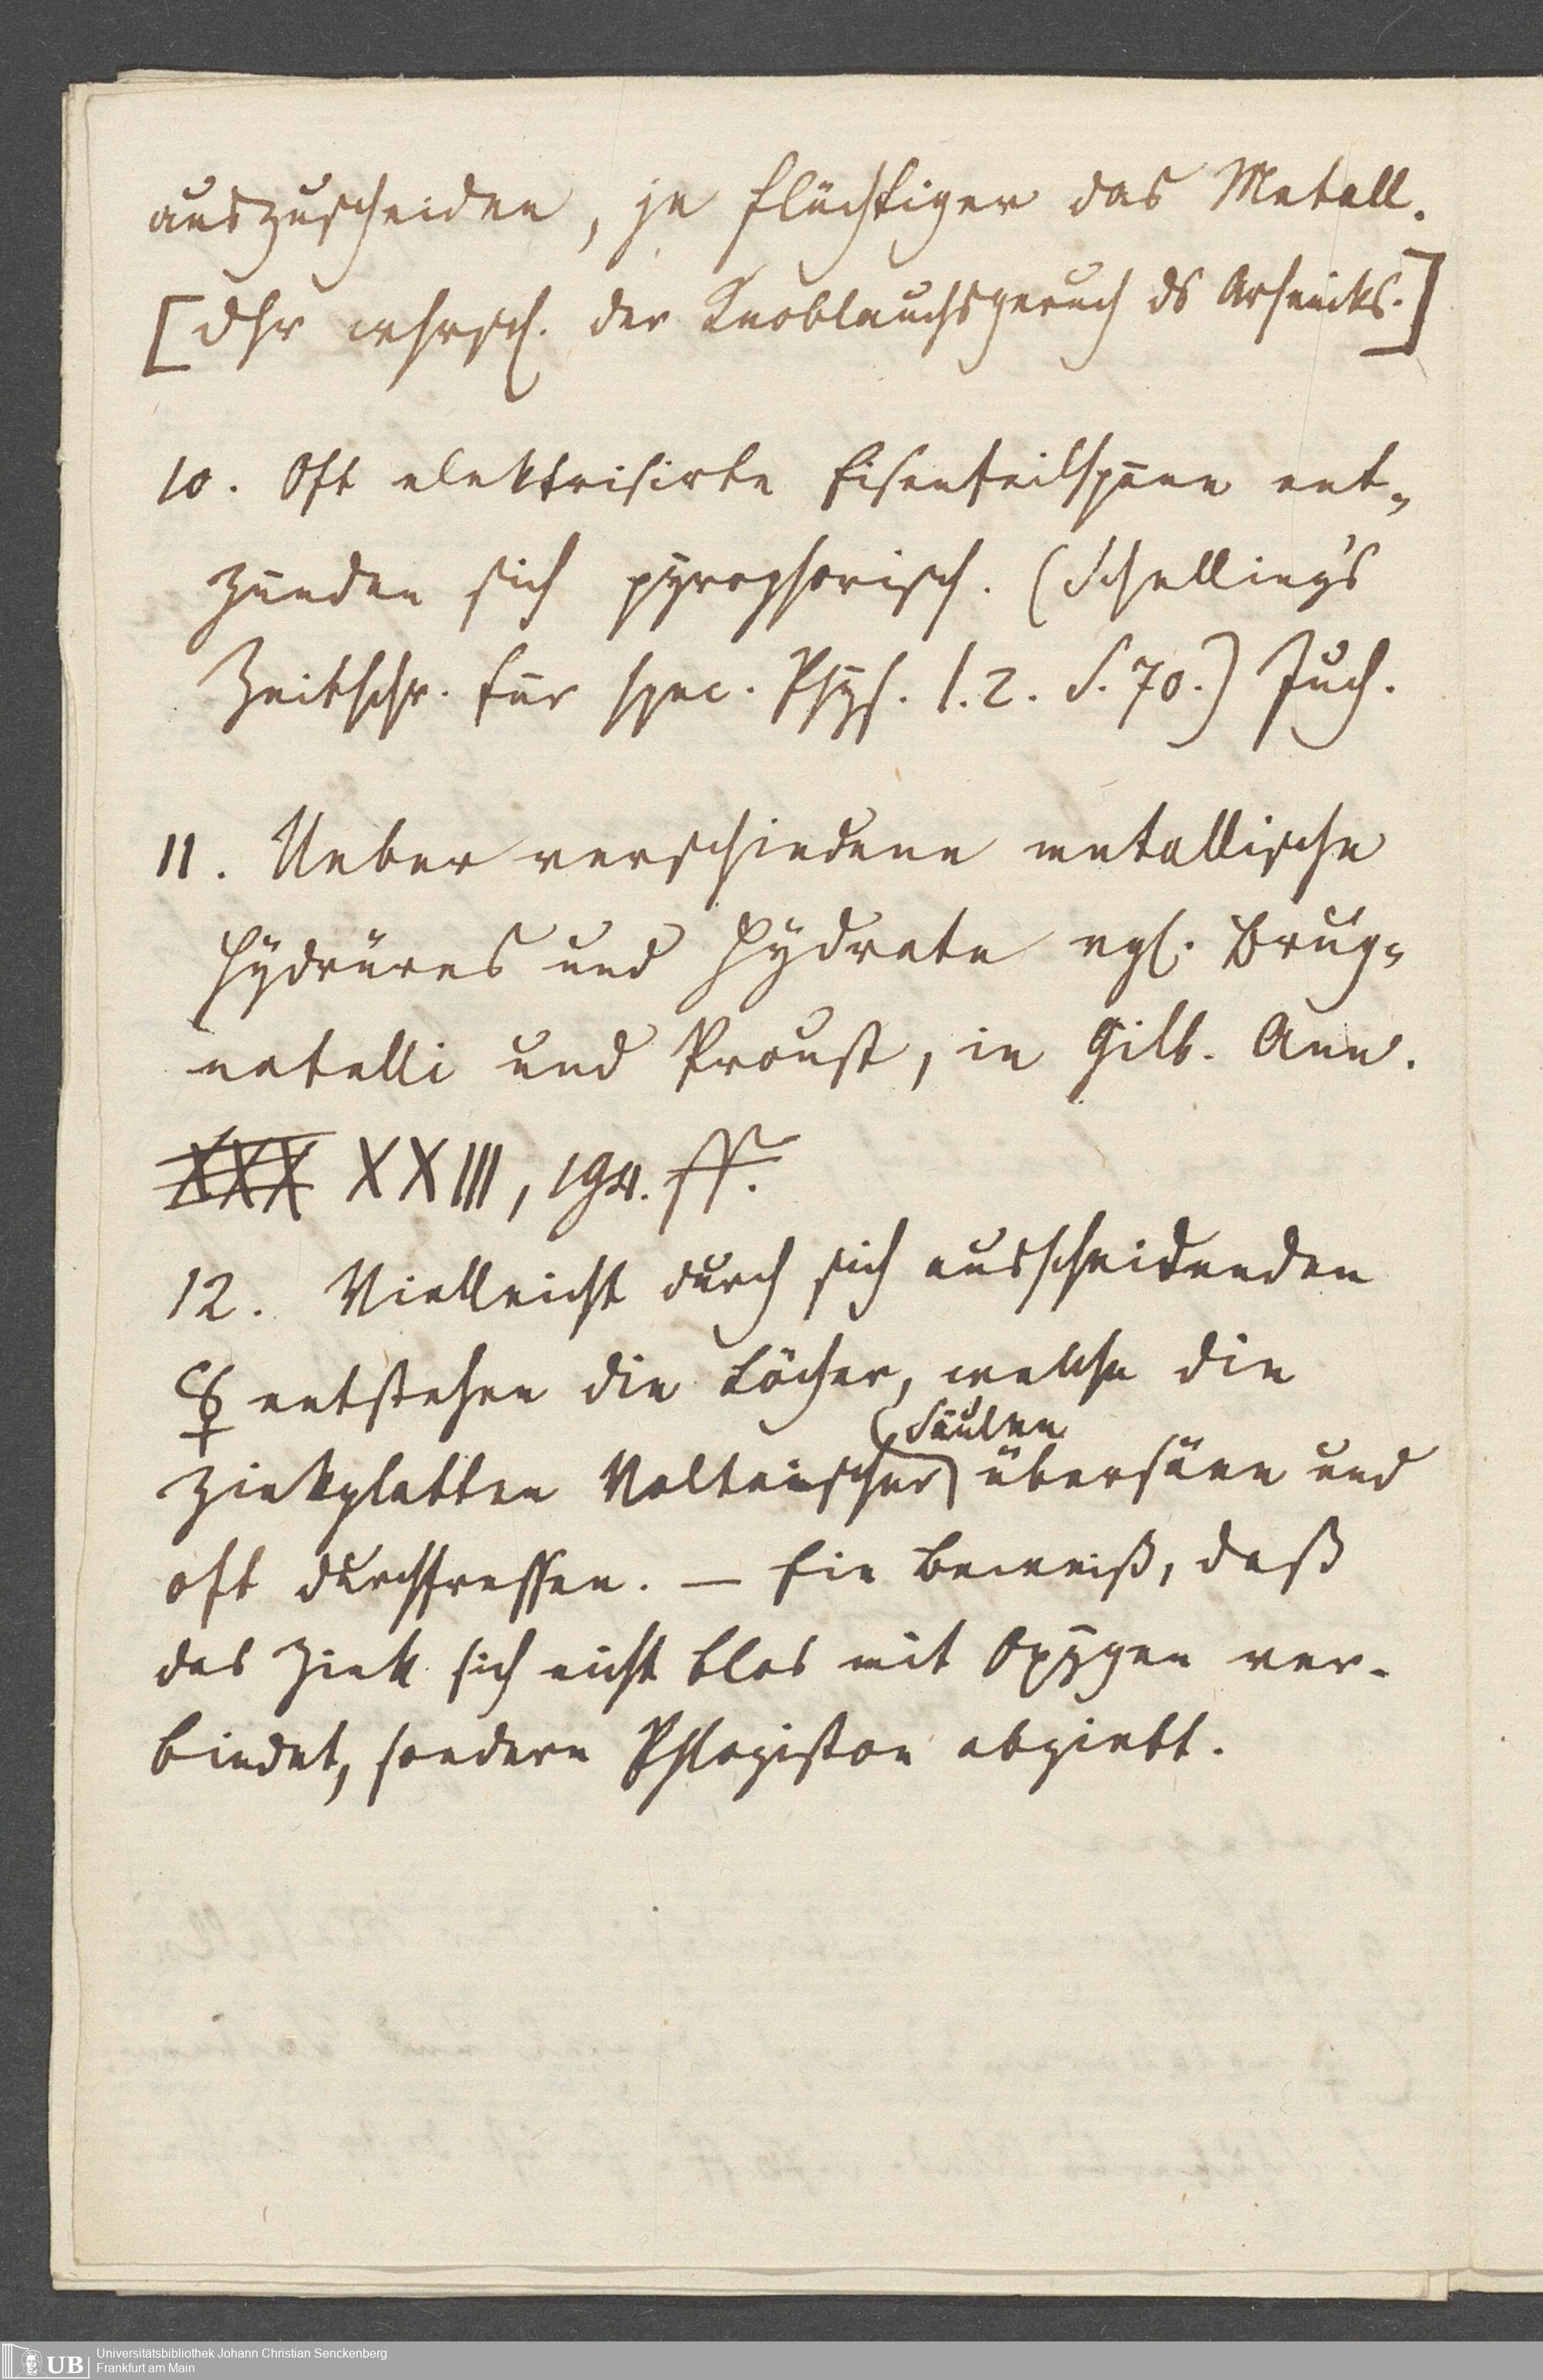 auszuscheiden, je flüchtiger das Metall.
[Dhr wahrsch. der Knoblauchsgeruch ds Arsenicks.]
10. Oft elektrisirte Eisenfeilspäne ent-
zünden sich pyrophorisch. (Schelling's
Zeitschr. für spec. Phys. I. 2. S. 70.) Juch.
11. Ueber verschiedene metallische
Hydrüres und Hydrate vgl. Brug-
natelli und Proust, in Gilb. Ann.
XXX XXIII, ff.
12. Vielleicht durch sich ausscheidenden
entstehen die Löcher, welche die
Säulen
Zinkplatten Voltaischer übersäen und
oft durchfressen. — Ein Beweiß, daß
das Zink sich nicht blos mit Oxygen ver-
bindet, sondern Phlogiston abgiebt.
UB Universitätsbibliothek Johann Christian Senckenberg
Frankfurt am Main